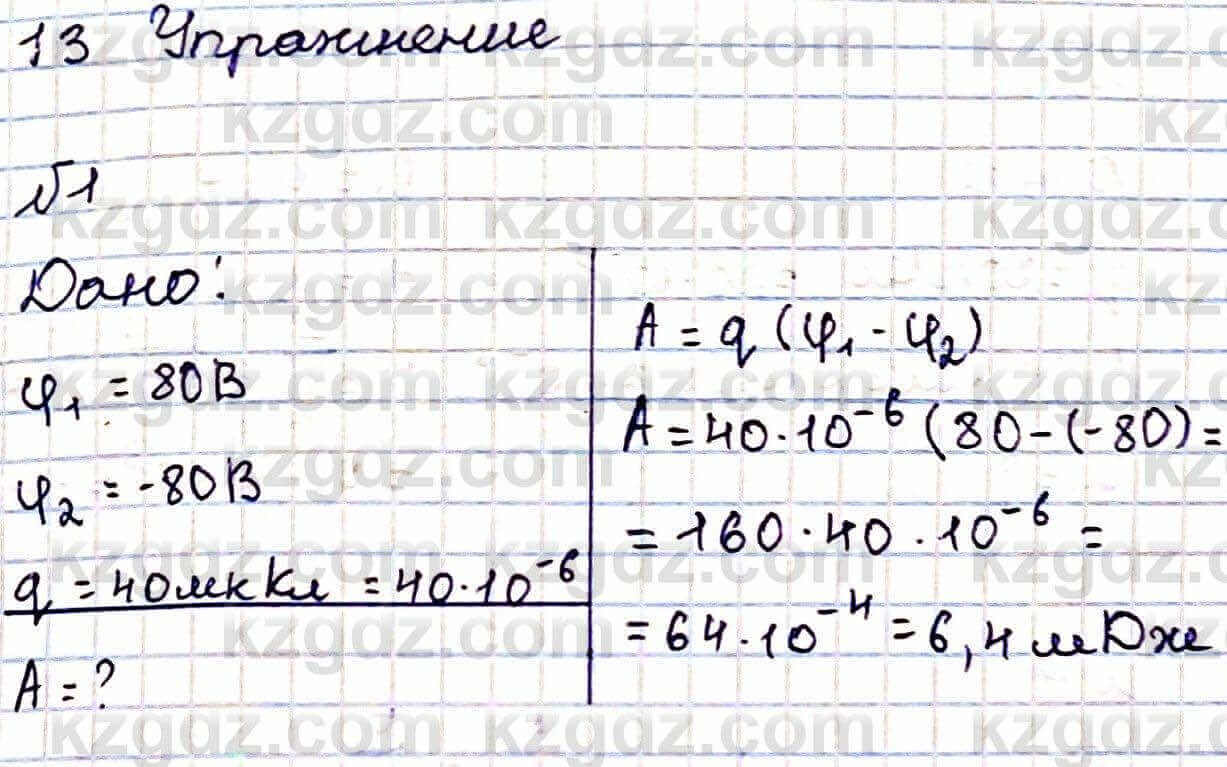 13 Упражнение
№1
Дано:
φ₁ = 80В
φ₂ = -80В
q = 40мкКл = 40·10⁻⁶
A = ?
A = q (φ₁ - φ₂)
A = 40·10⁻⁶ (80-(-80) =
= 160·40·10⁻⁶ =
= 64·10⁻⁴ = 6,4мДж
kzgdz.com